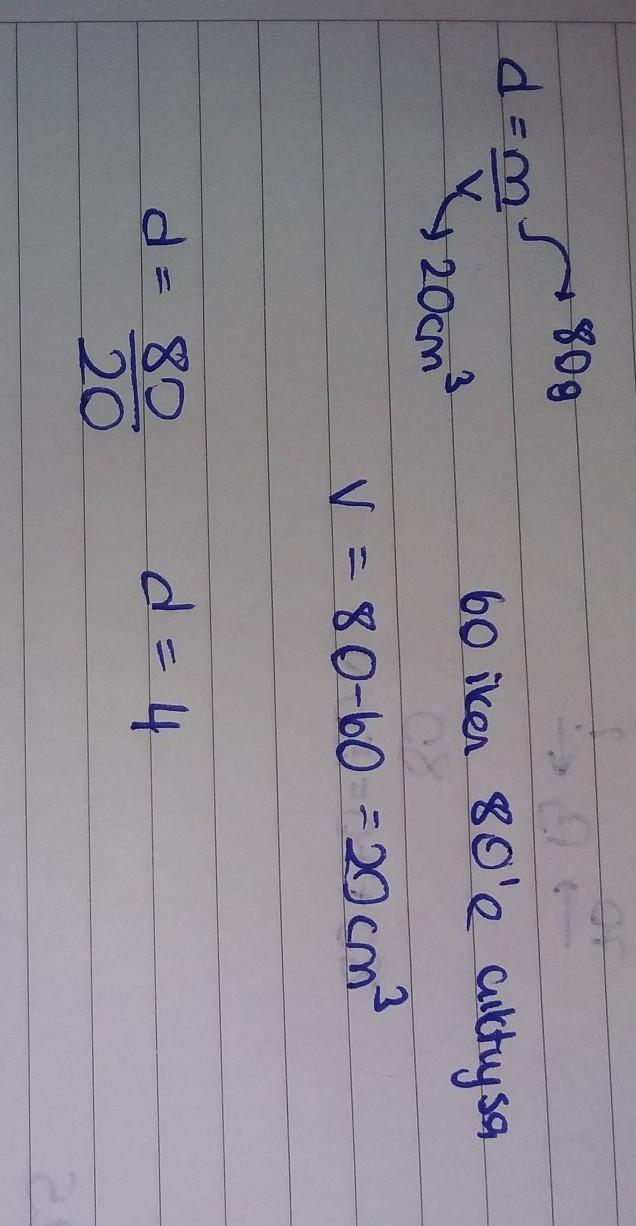 d = m/V → 80g
→ 20cm³
60 iken 80'e çıktıysa
V = 80-60 = 20cm³
d = 80/20 d = 4